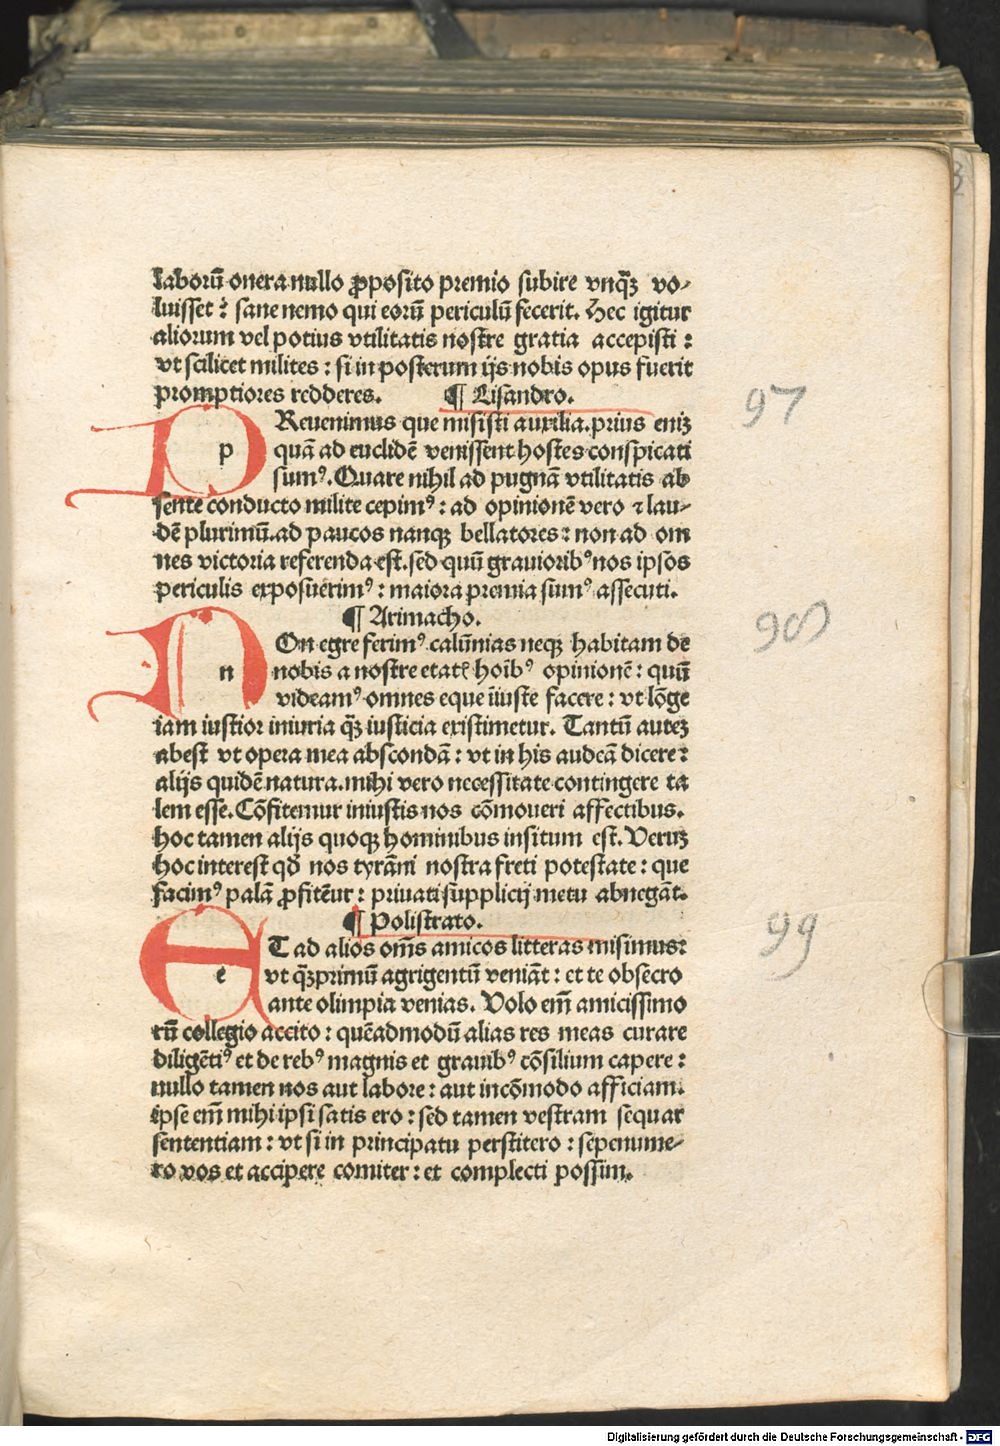 laborū onera nullo ꝓposito premio subire vnq̄ꝫ vo⸗
luisset : sane nemo qui eorū periculū fecerit. Hec igitur
aliorum vel potius vtilitatis nostre gratia accepisti :
vt scilicet milites : si in posterum ijs nobis opus fuerit
promptiores redderes. ¶ Lisandro.
97
p REuenimus que misisti auxilia. prius eniꝫ
quā ad euclidē venissent hostes conspicati
sumꝰ. Quare nihil ad pugnā vtilitatis ab
sente conducto milite cepimꝰ : ad opinionē vero ⁊ lau⸗
dē plurimū. ad paucos nanqꝫ bellatores : non ad om
nes victoria referenda est. sed quū grauioribꝰ nos ipsos
periculis exposuerimꝰ : maiora premia sumꝰ assecuti.
¶ Arimacho.
98
n On egre ferimꝰ calūnias neqꝫ habitam de
nobis a nostre etatē hoībꝰ opinionē : quū
videamꝰ omnes eque īiuste facere : vt lōge
iam iustior iniuria q̄ꝫ iusticia existimetur. Tantū auteꝫ
abest vt opera mea abscondā : vt in his audeā dicere :
alijs quidē natura. mihi vero necessitate contingere ta
lem esse. Cōfitemur iniustis nos cōmoueri affectibus.
hoc tamen alijs quoqꝫ hominibus insitum est. Veruꝫ
hoc interest qđ nos tyrāni nostra freti potestate : que
facimꝰ palā ꝓfitētur : priuati supplicij metu abnegāt.
¶ Polistrato.
99
e T ad alios om̄s amicos litteras misimus :
vt q̄ꝫprimū agrigentū veniāt : et te obsecro
ante olimpia venias. Volo em̄ amicissimo
rū collegio accito : quēadmodū alias res meas curare
diligētiꝰ et de rebꝰ magnis et grauibꝰ cōsilium capere :
nullo tamen nos aut labore : aut incōmodo afficiam.
ipse em̄ mihi ipsi satis ero : sed tamen vestram sequar
sententiam : vt si in principatu perstitero : sepenume⸗
ro vos et accipere comiter : et complecti possim.
Digitalisierung gefördert durch die Deutsche Forschungsgemeinschaft - DFG